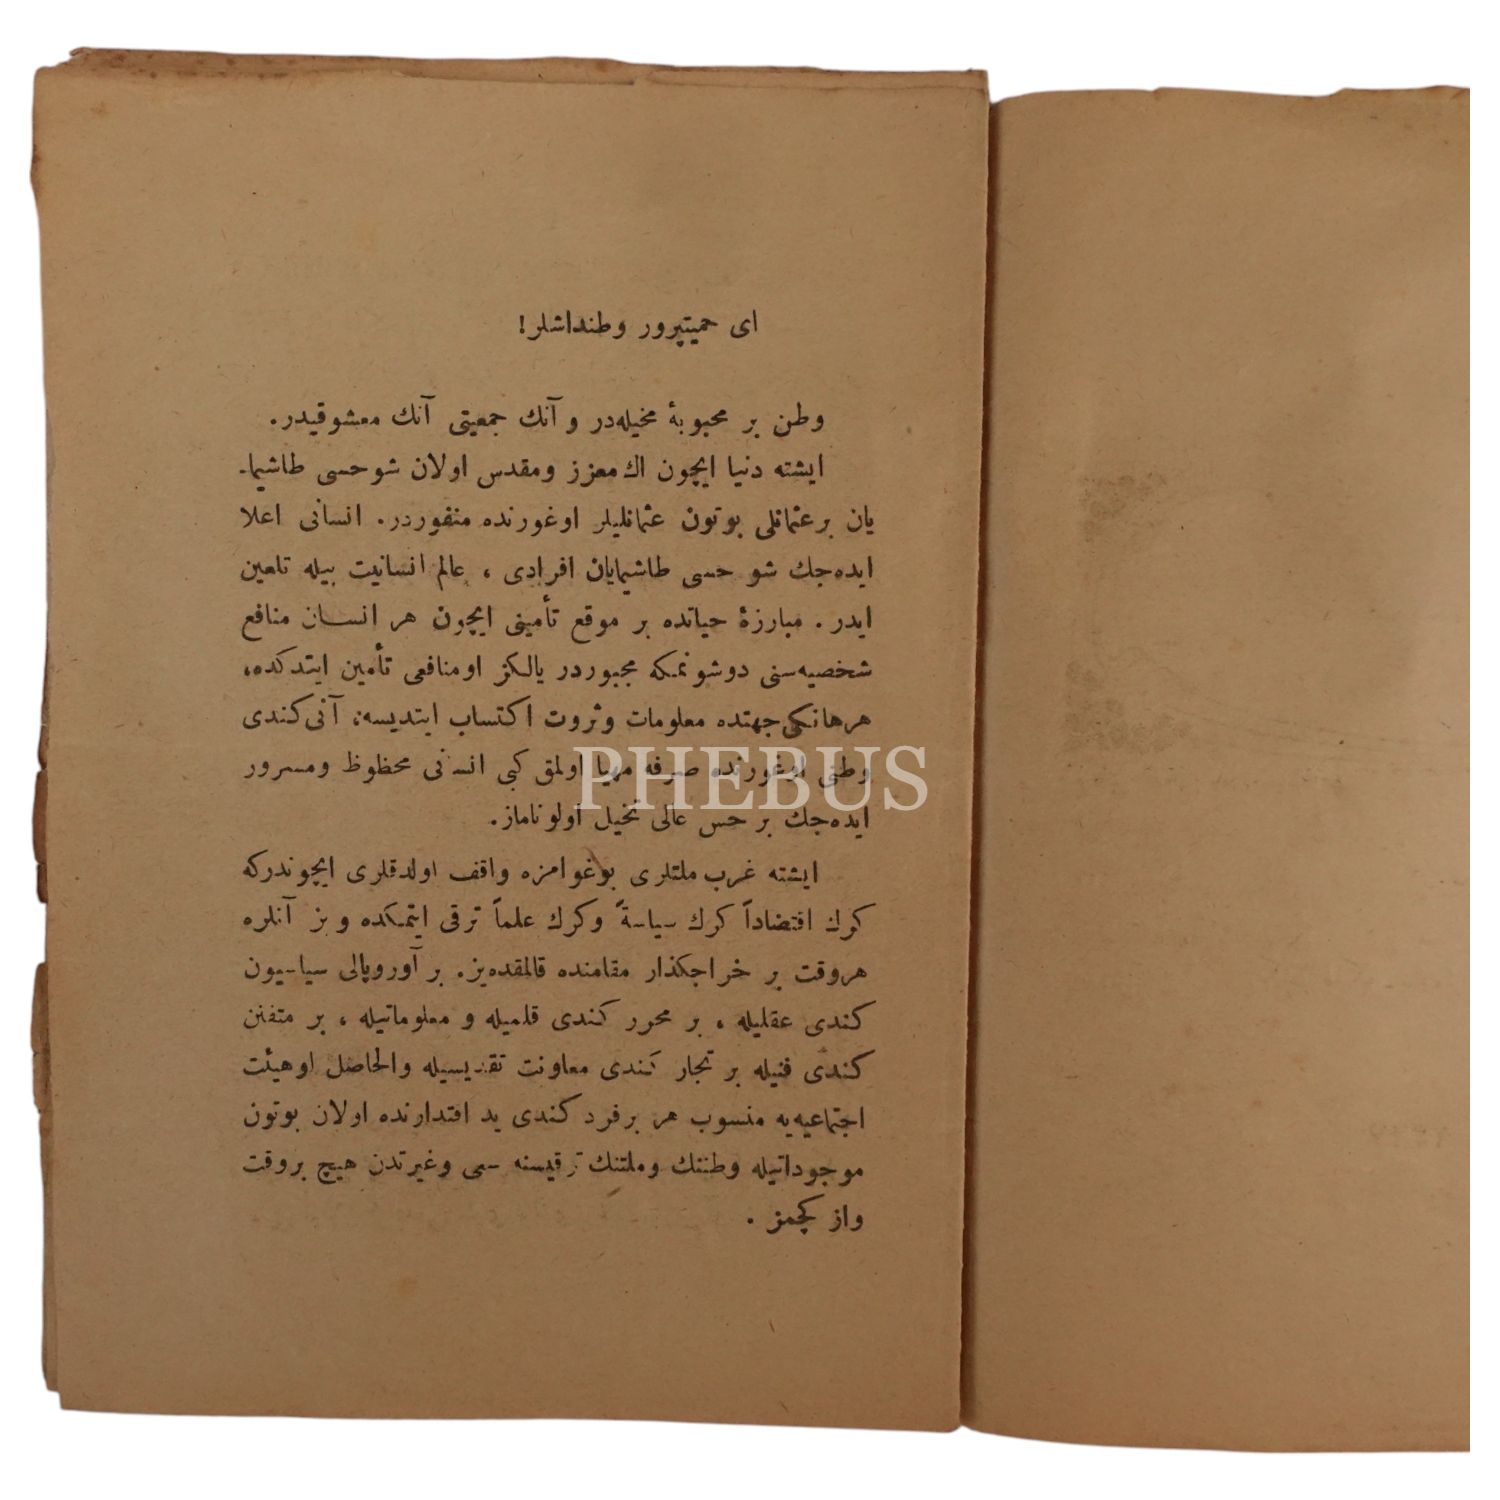 ای حمیتپرور وطنداشلر!
وطن بر محبوبۀ مخیله‌در و آنك جمعیتی آنك معشوقیدر.
ایشته دنیا ایچون اك معزز ومقدس اولان شو حسی طاشیما-
یان بر عثمانلی بوتون عثمانلیلر اوغورنده منفوردر. انسانی اعلا
ایده‌جك شو حسی طاشیمایان افرادی ، عالم انسانیت بیله تلعین
ایدر . مبارزۀ حیاتده بر موقع تأمینی ایچون هر انسان منافع
شخصیه‌سنی دوشونمكه مجبوردر یالكز اومنافعی تأمین ایتدكده،
هرهانكی جهتده معلومات وثروت اكتساب ایتدیسه، آنی كندی
وطنی اوغورنده صرفه مهیا اولمق كبی انسانی محظوظ ومسرور
ایده‌جك بر حس عالی تخیل اولوناماز.
ایشته غرب ملتلری بوغوامزه واقف اولدقلری ایچوندركه
كرك اقتضاداً كرك سیاسةً وكرك علماً ترقی ایتمكده و بز آنلره
هروقت بر خراجكذار مقامنده قالمقده‌یز. بر آوروپالی سیاسیون
كندی عقلیله ، بر محرر كندی قلمیله و معلوماتیله ، بر متفنن
كندی فنیله بر تجار كندی معاونت نقدیسیله والحاصل اوهیئت
اجتماعیه‌یه منسوب هر برفرد كندی ید اقتدارنده اولان بوتون
موجوداتیله وطننك وملتنك ترقیسنه سعی وغیرتدن هیچ بروقت
واز كچمز .
PHEBUS